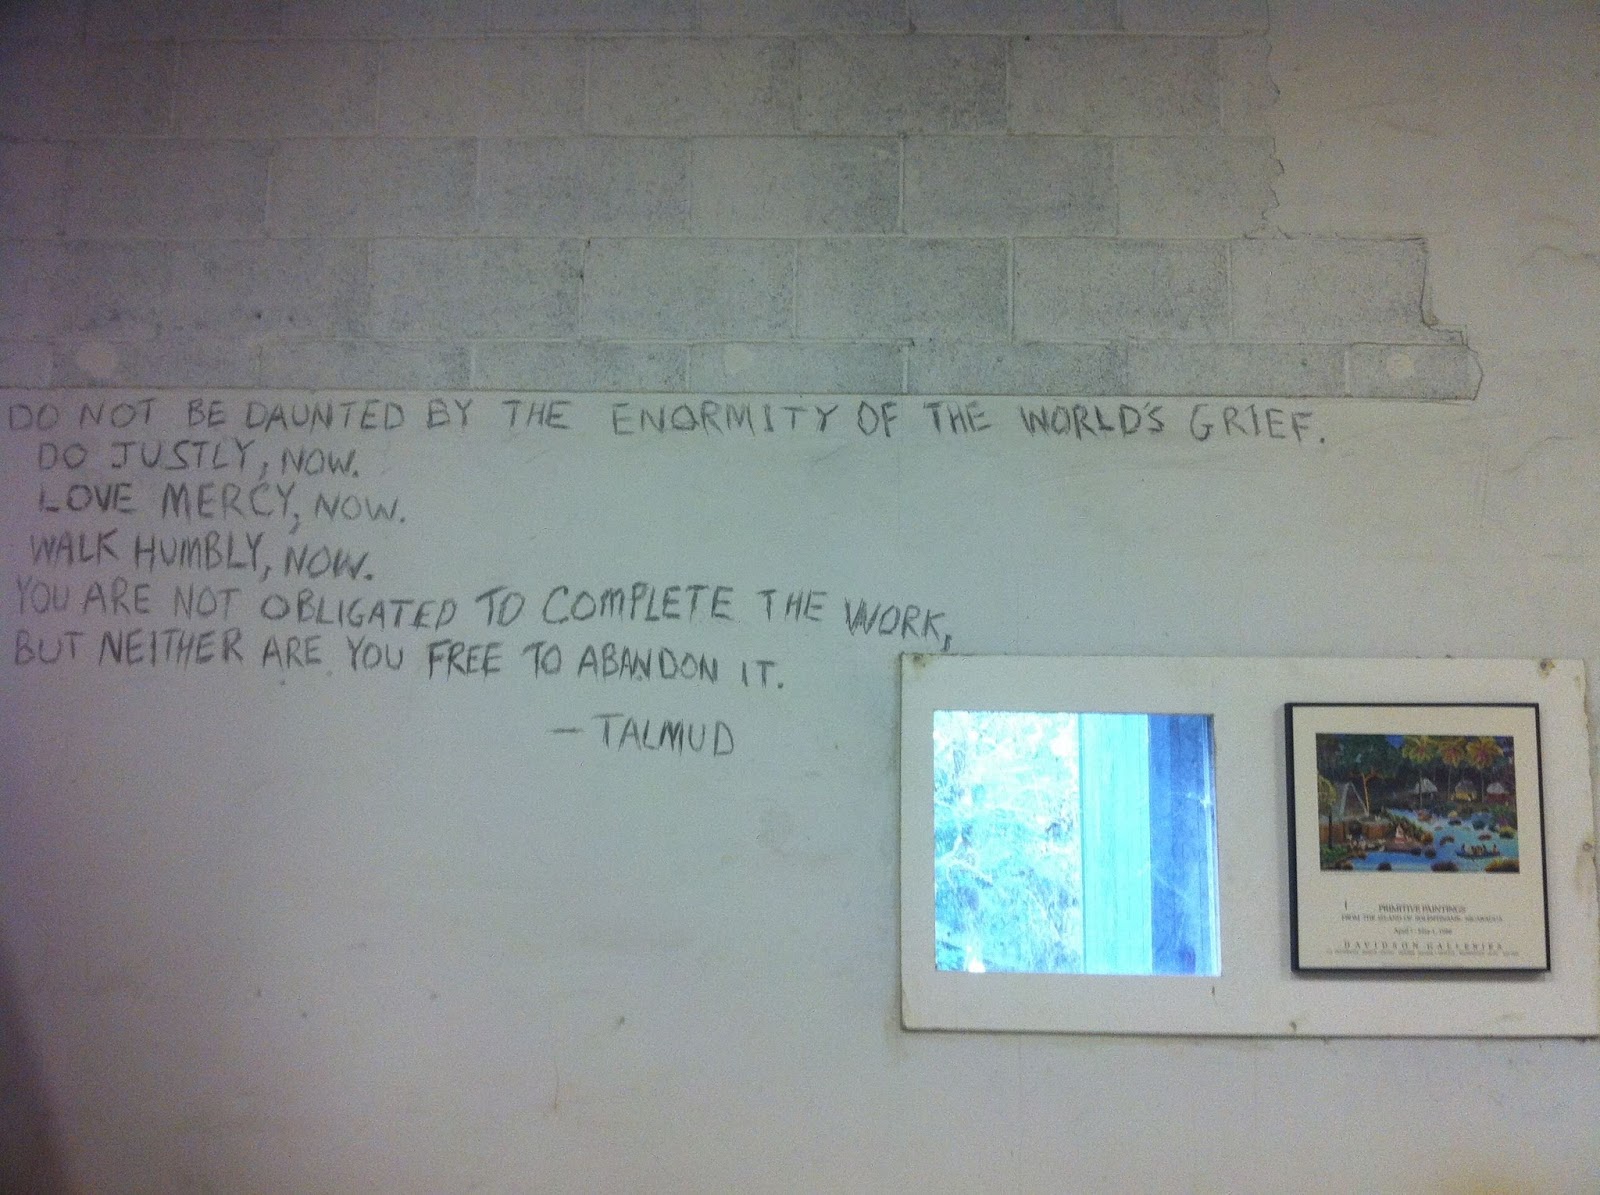 DO NOT BE DAUNTED BY THE ENORMITY OF THE WORLD'S GRIEF.
DO JUSTLY, NOW.
LOVE MERCY, NOW.
WALK HUMBLY, NOW.
YOU ARE NOT OBLIGATED TO COMPLETE THE WORK,
BUT NEITHER ARE YOU FREE TO ABANDON IT.
— TALMUD
PRIMITIVE PAINTINGS
FROM THE ISLAND OF SOLENTINAME, NICARAGUA
DAVIDSON GALLERIES